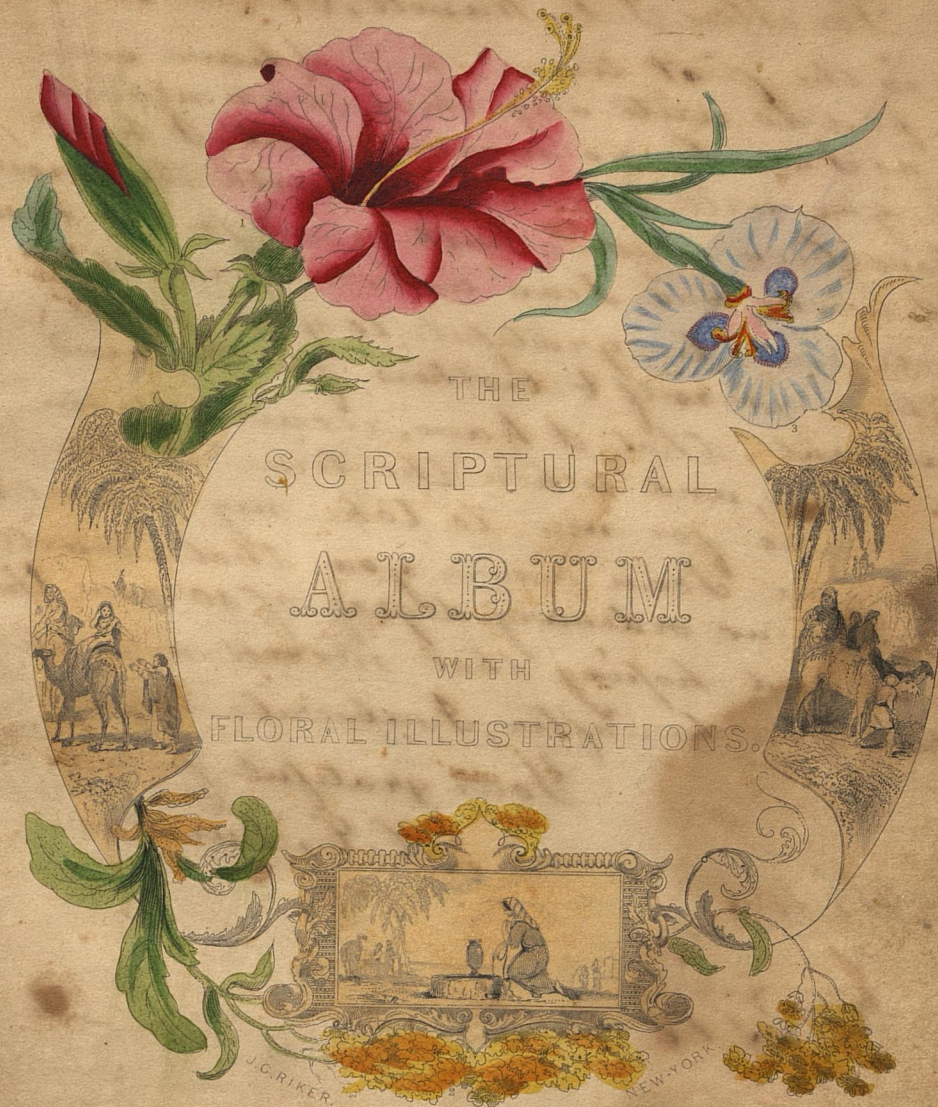 THE
SCRIPTURAL
ALBUM
WITH
FLORAL ILLUSTRATIONS.
1
3
2
J.C.RIKER.
NEW-YORK